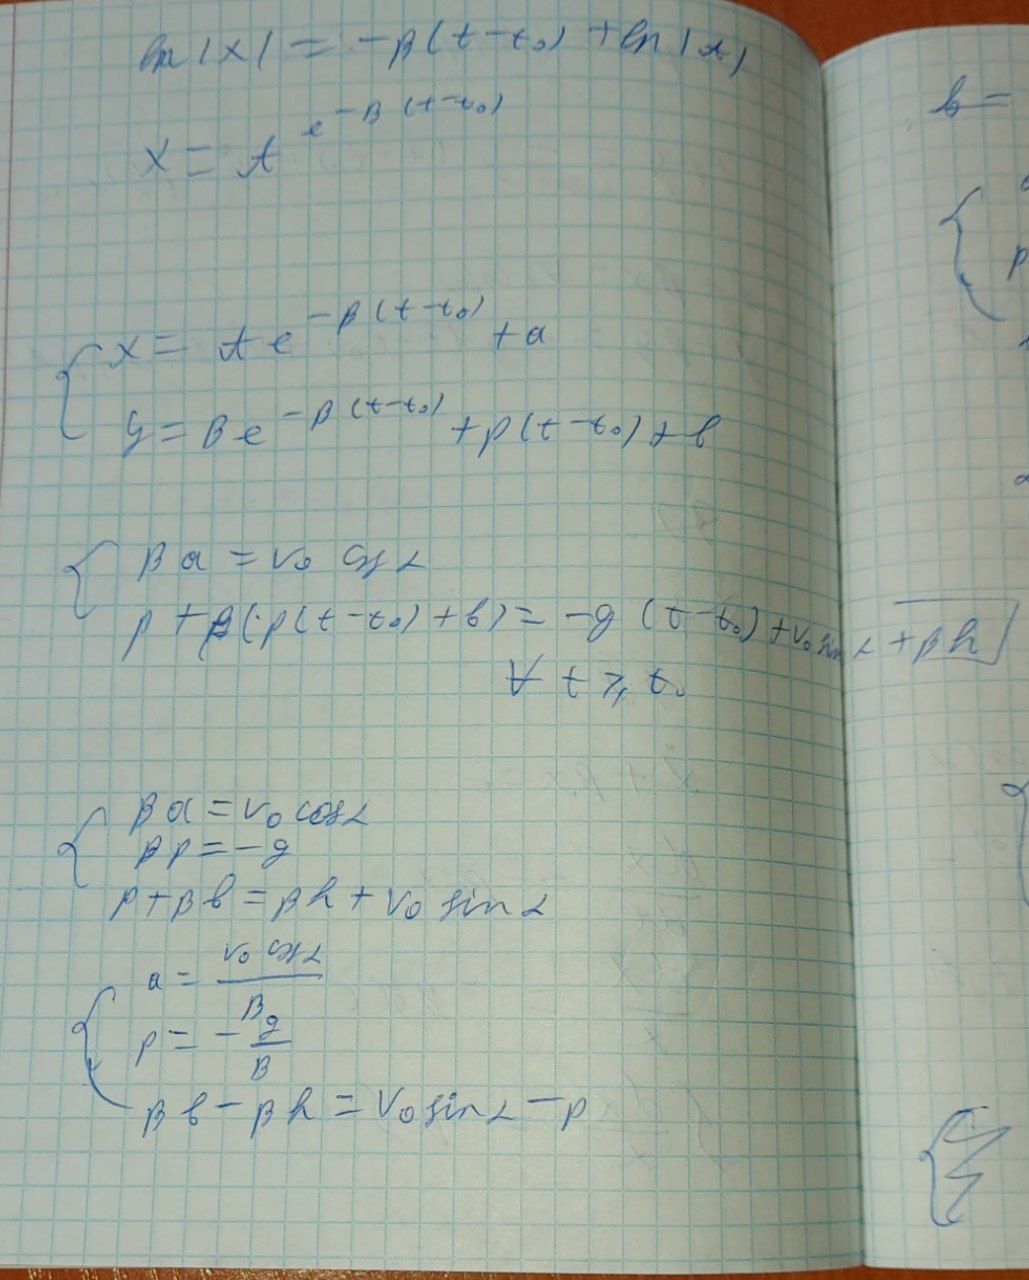 ln |x| = -β(t-t₀) + ln |A|
x = A e^{-β(t-t₀)}
{ x = A e^{-β(t-t₀)} + a
y = B e^{-β(t-t₀)} + p(t-t₀) + b
{ βa = v₀ cos α
p + β(p(t-t₀) + b) = -g(t-t₀) + v₀ sin α + βh
∀ t ≥ t₀
{ βa = v₀ cos α
βp = -g
p + βb = βh + v₀ sin α
{ a = v₀ cos α / β
p = - g / β
βb - βh = v₀ sin α - p
b =